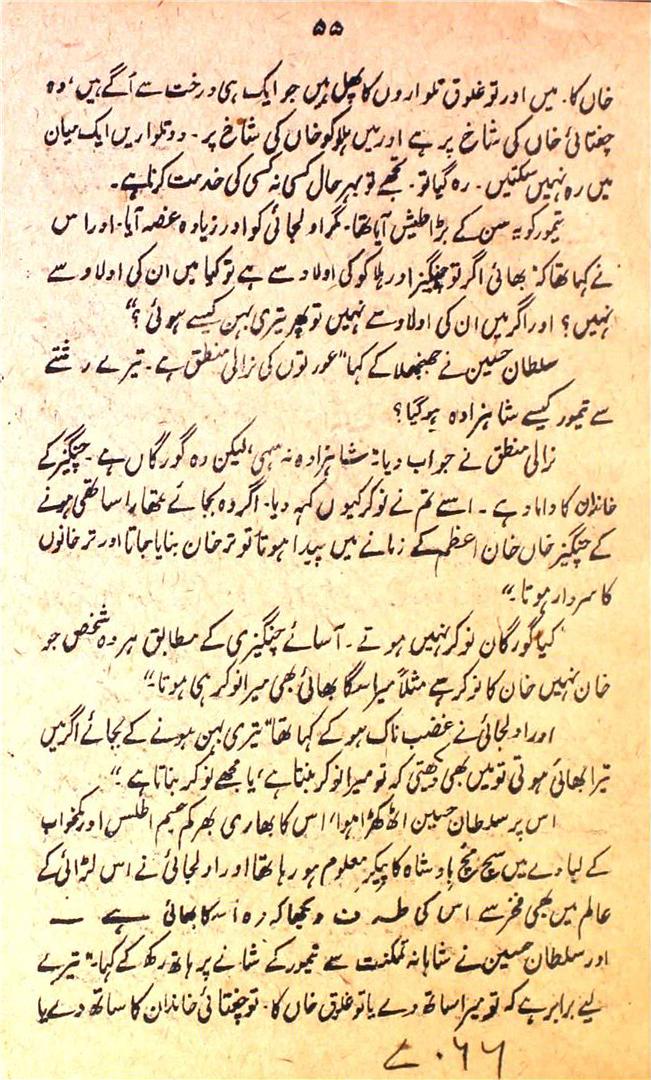 ۵۵
خاں کا۔ میں اور تو غلوق تلواروں کا پھل ہیں جو ایک ہی درخت سے اُگے ہیں، وہ
چغتائی خاں کی شاخ پر ہے اور میں ہلاکو خاں کی شاخ پر۔ دو تلواریں ایک میان
میں رہ نہیں سکتیں۔ رہ گیا تو۔ تجھے تو بہرحال کسی نہ کسی کی خدمت کرنا ہے۔
تیمور کو یہ سن کے بڑا طیش آیا تھا۔ مگر اولجائی کو اور زیادہ غصہ آیا۔ اور اس
نے کہا تھا کہ بھائی اگر تو چنگیز اور ہلاکو کی اولاد سے ہے تو کیا میں ان کی اولاد سے
نہیں؟ اور اگر میں ان کی اولاد سے نہیں تو پھر تیری بہن کیسے ہوئی؟"
سلطان حسین نے جھنجھلا کے کہا "عورتوں کی نرالی منطق ہے۔ تیرے رشتے
سے تیمور کیسے شاہزادہ ہو گیا؟
نرالی منطق نے جواب دیا: شاہزادہ نہ سہی، لیکن وہ گورگاں ہے۔ چنگیز کے
خاندان کا داماد ہے۔ اسے تم نے نوکر کیوں کہہ دیا۔ اگر وہ بجائے تمھارا ساتھی ہونے
کے چنگیز خاں خان اعظم کے زمانے میں پیدا ہوتا تو ترخان بنایا جاتا اور ترخانوں
کا سردار ہوتا۔"
کیا گورگان نوکر نہیں ہوتے۔ آسائے چنگیزی کے مطابق ہر وہ شخص جو
خان نہیں خان کا نوکر ہے مثلاً میرا سگا بھائی بھی میرا نوکر ہی ہوتا۔"
اور اولجائی نے غضب ناک ہو کے کہا تھا "تیری بہن ہونے کے بجائے اگر میں
تیرا بھائی ہوتی تو میں بھی دیکھتی کہ تو میرا نوکر بنتا ہے، یا مجھے نوکر بناتا ہے۔"
اس پر سلطان حسین اٹھ کھڑا ہوا، اس کا بھاری بھرکم جسم اطلس اور کمخواب
کے لبادے میں سچ مچ بادشاہ کا پیکر معلوم ہو رہا تھا اور اولجائی نے اس لڑائی کے
عالم میں بھی فخر سے اس کی طرف دیکھا کہ وہ اُس کا بھائی ہے —
اور سلطان حسین نے شاہانہ تمکنت سے تیمور کے شانے پر ہاتھ رکھ کے کہا۔ "تیرے
لیے برابر ہے کہ تو میرا ساتھ دے یا تو غلوق خاں کا۔ تو چغتائی خاندان کا ساتھ دے یا